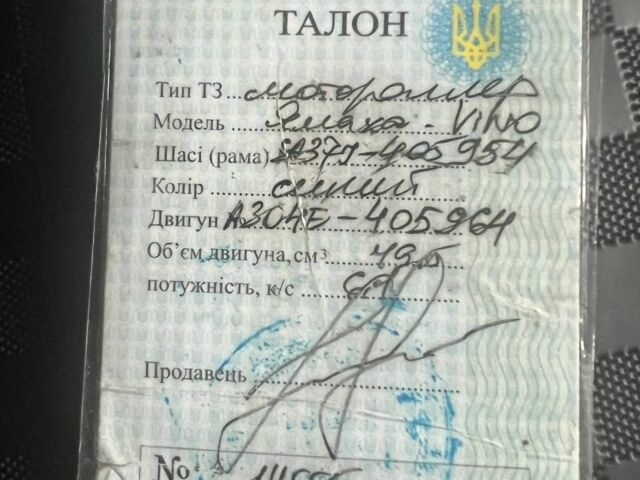 ТАЛОН
Тип ТЗ моторомлер
Модель Ямаха - VINO
Шасі (рама) SA37J-405954
Колір синий
Двигун A304E-405964
Об'єм двигуна, см³ 49,5
потужність, к/с
Продавець
No